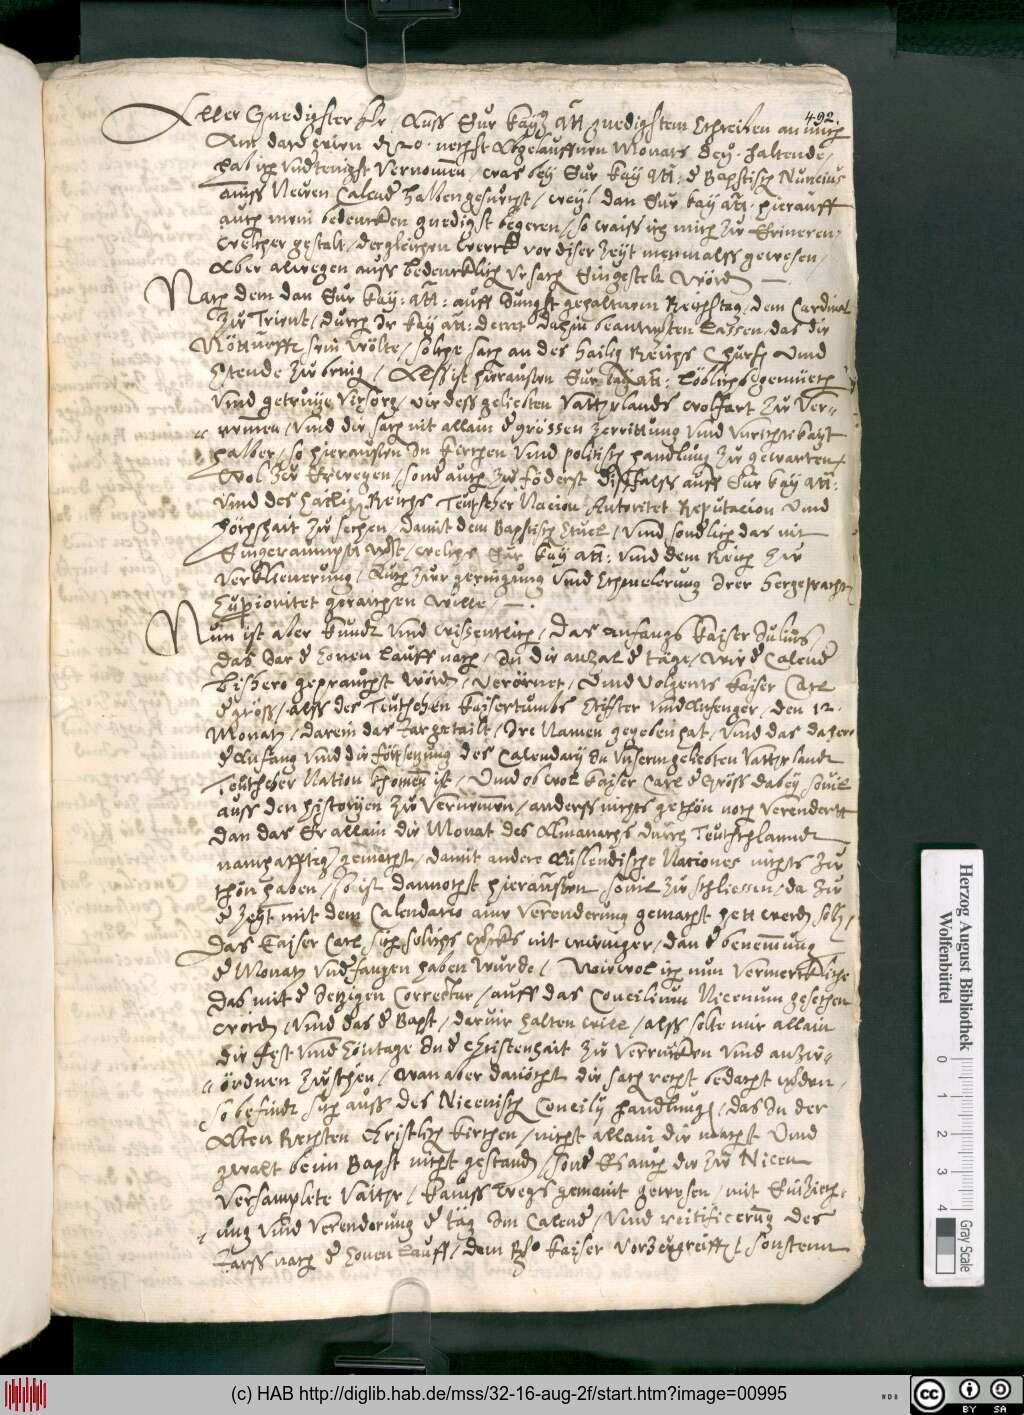 492.
Aller Gnedigster Hr. Auss Eur Kay: Mt: gnedigstem Schreiben an mich
Am dato Wien den 20. nechst Abgelauffnen Monats Decz. haltende,
hab ich Vndtenigst Vernomen, was bey Eur Kay Mt: d Bapstisch Nuncius
auss Neüen Calend halben gesucht, weyl dan Eur Kay Mt. hierauff
auch mein bedencken gnedigst begeren, so waiss ich mich zu Erineren,
Welcher gestalt, dergleichen Werck vor diser Zeyt mermalss gewesen,
Aber alwegen auss bedencklich Vrsach Eingestelt Word —.
Nach dem dan Eur Kay: Mt: auff Jungst gehaltnem Reichstag, dem Cardinal
zu Trient, durch Ir Kay Mt: decret dahin beantworten lassen, das die
Notturfft sein wölte, solche sach an des Hailig Reichs Churf. Vnd
Stende zu bring, Alss ist hieraussen Eur Kay Mt: löblichs gemüeth
Vnd getruye Virsorg, vir dess geliebten Vatterlands wolfart zu Ver-
nemen, Vnd die sach nit allain d grössen Zerrittung Vnd Vnrichtikayt
halber, so hieraussen In Kirchen Vnd politisch handlung zu gewarten,
Wol zu Erwegen, sond auch zu föderst dissfalss auff Eur Kay Mt:
Vnd des Hailig Reichs Teutscher Nacion Autoritet Reputacion Vnd
Hochhait zu sechen, damit dem Bapstisch Stuel, Vnd sondlich das nit
Eingeraumpt werde, welchs Eur Kay Mt: Vnd dem Reich zu
Verklienerung, Auch zur geringung Vnd Schmelerung Irer hergeprachten
Supioritet geraichen wille, —.
Nun ist aber Kundt Vnd wissentlich, das anfangs Kaiser Julius
das Jar d Sonen lauff nach, In die anzal d täge, wie d Calend
bishero gepraucht Word, Verörnet, Vnd Volgents Kaiser Carl
d gröss, alss des Teutschen Kaisertumbs Stiffter Vnd Anfenger, den 12.
Monatn, darein das Jar getailt, Ire Namen gegeben hat, Vnd das dahero
d Anfang Vnd die fortsetzung des Calendary In Vnserm geliebten Vatterlandt
Teutscher Nation khomen ist, Vnd ob wol Kaiser Carl d Gröss dabey, souil
auss den Historyen zu Vernemen, anderss nichts gethon noch verendertt
dan das Er allain die Monat des Almanachs durch Teutschlanndt
namhafftig gemacht, damit andere Auslendische Nationes nichts zu
thon haben, so ist dannocht hieraussen souil zu schliessen, da zu
d Zeyt mit dem Calendario ainr Verenderung gemacht hett werd solln,
das Kaiser Carl sich solichs wercks nit weniger, dan d benennung
d Monatn Vndfangen haben wurde, Wiewol ich nun Vermercklich
das mit d Jetzigen Correctur, auff das Concilium Nicenum gesechen
Word, Vnd das d Bapst, daruir halten will, alss solte mir allain
die fest Vnd Sontage In d Christenhait zu Verrucken Vnd anzu-
ördnen Zusthen, Wan aber dannocht die sach recht bedacht werden,
so befindt sich auss des Nicenisch Concily handlung, das In der
Alten Rechten Christlich Kirchen, nicht allain die macht Vnd
gewalt beim Bapst nicht gestand, sond Es auch die zu Nicen
Versamplete Vatter, Kainss wegs gemaint gewesen, mit Einzieh-
ung Vnd Verenderung d täg Im Calend, Vnd rectificerung des
Jarss nach d Sonen lauff, dem Rö. Kaiser Vorzugreiffen, sonstenn
Herzog August Bibliothek
Wolfenbüttel
0 1 2 3 4
Gray Scale
(c) HAB http://diglib.hab.de/mss/32-16-aug-2f/start.htm?image=00995
WDB
cc BY SA